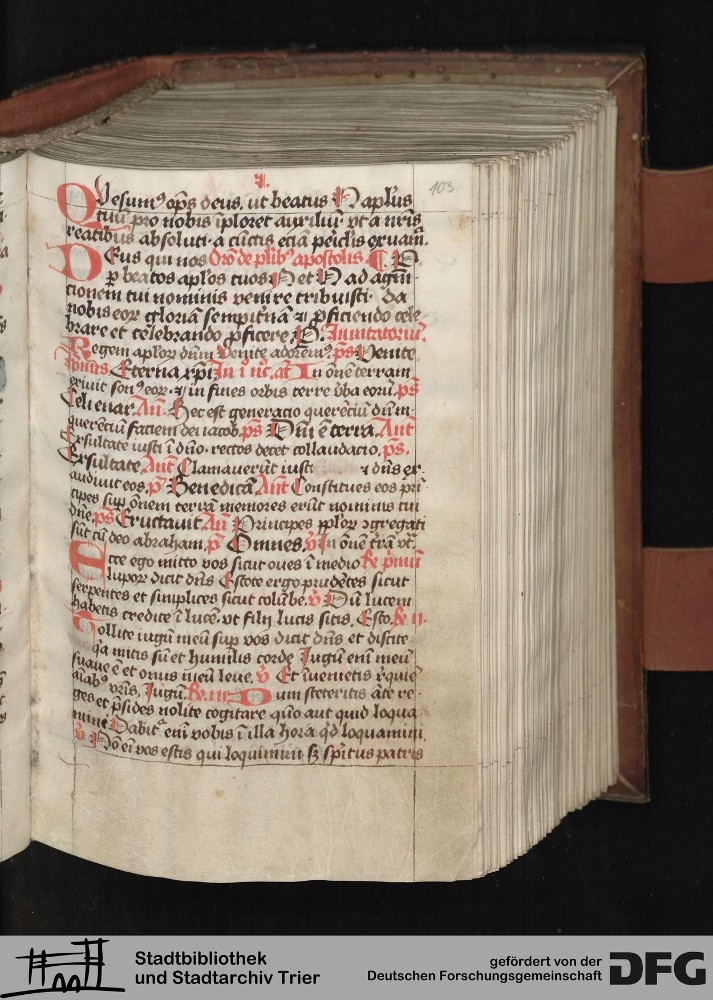 .I.
103
Quesumus ops deus, ut beatus N aplus
tuus pro nobis iploret auxiliū ut a nris
reatibus absoluti a cūctis eciā peiclis exuam̄.
Deus qui nos Oro de plib9 apostolis
p beatos aplos tuos N et N ad agni
cionem tui nominis venire tribuisti da
nobis eor gloriā sempitnā et pficiendo cele
brare et celebrando pficere P. Inuitatoriū.
Regem aplor dūm Venite adorem9 ps Venite
Ipnus Eterna xpi In i nc. at In onē terram
exiuit son9 eor et in fines orbis terre vba eorū ps
Celi enar. An. Hec est generacio querēciū dūm
querēciū faciem dei iacob. ps Dni ē terra. Ant
Exultate iusti ī dno. rectos decet collaudacio. ps.
Exultate Ant Clamauerūt iusti et dns ex
audiuit eos, ps Benedicā Ant Constitues eos pri
cipes sup onem terrā memores erūt nominis tui
dne ps Eructauit An Principes pplor ɔgregati
sūt cū deo abraham. p Omnes. V In onē trā
Ecce ego mitto vos sicut oues i medio Re primū
lupor dicit dns Estote ergo prudētes sicut
serpentes et simplices sicut colūbe. V Dū lucem
habetis credite ī lucē vt filij lucis sitis. Esto. Re II.
Tollite iugū meū sup vos dicit dns et discite
qa mitis sū et humilis corde Iugū enī meū
suaue ē et onus meū leue. V Et īuenietis requiē
aiab9 vris. Iugū. Re. III Dum steteritis āte re
ges et psides nolite cogitare quo aut quid loqua
mini Dabit enī vobis ī illa hora qd loquamini
V No enī vos estis qui loquimini sz spiritus patris
Stadtbibliothek
und Stadtarchiv Trier
gefördert von der
Deutschen Forschungsgemeinschaft
DFG